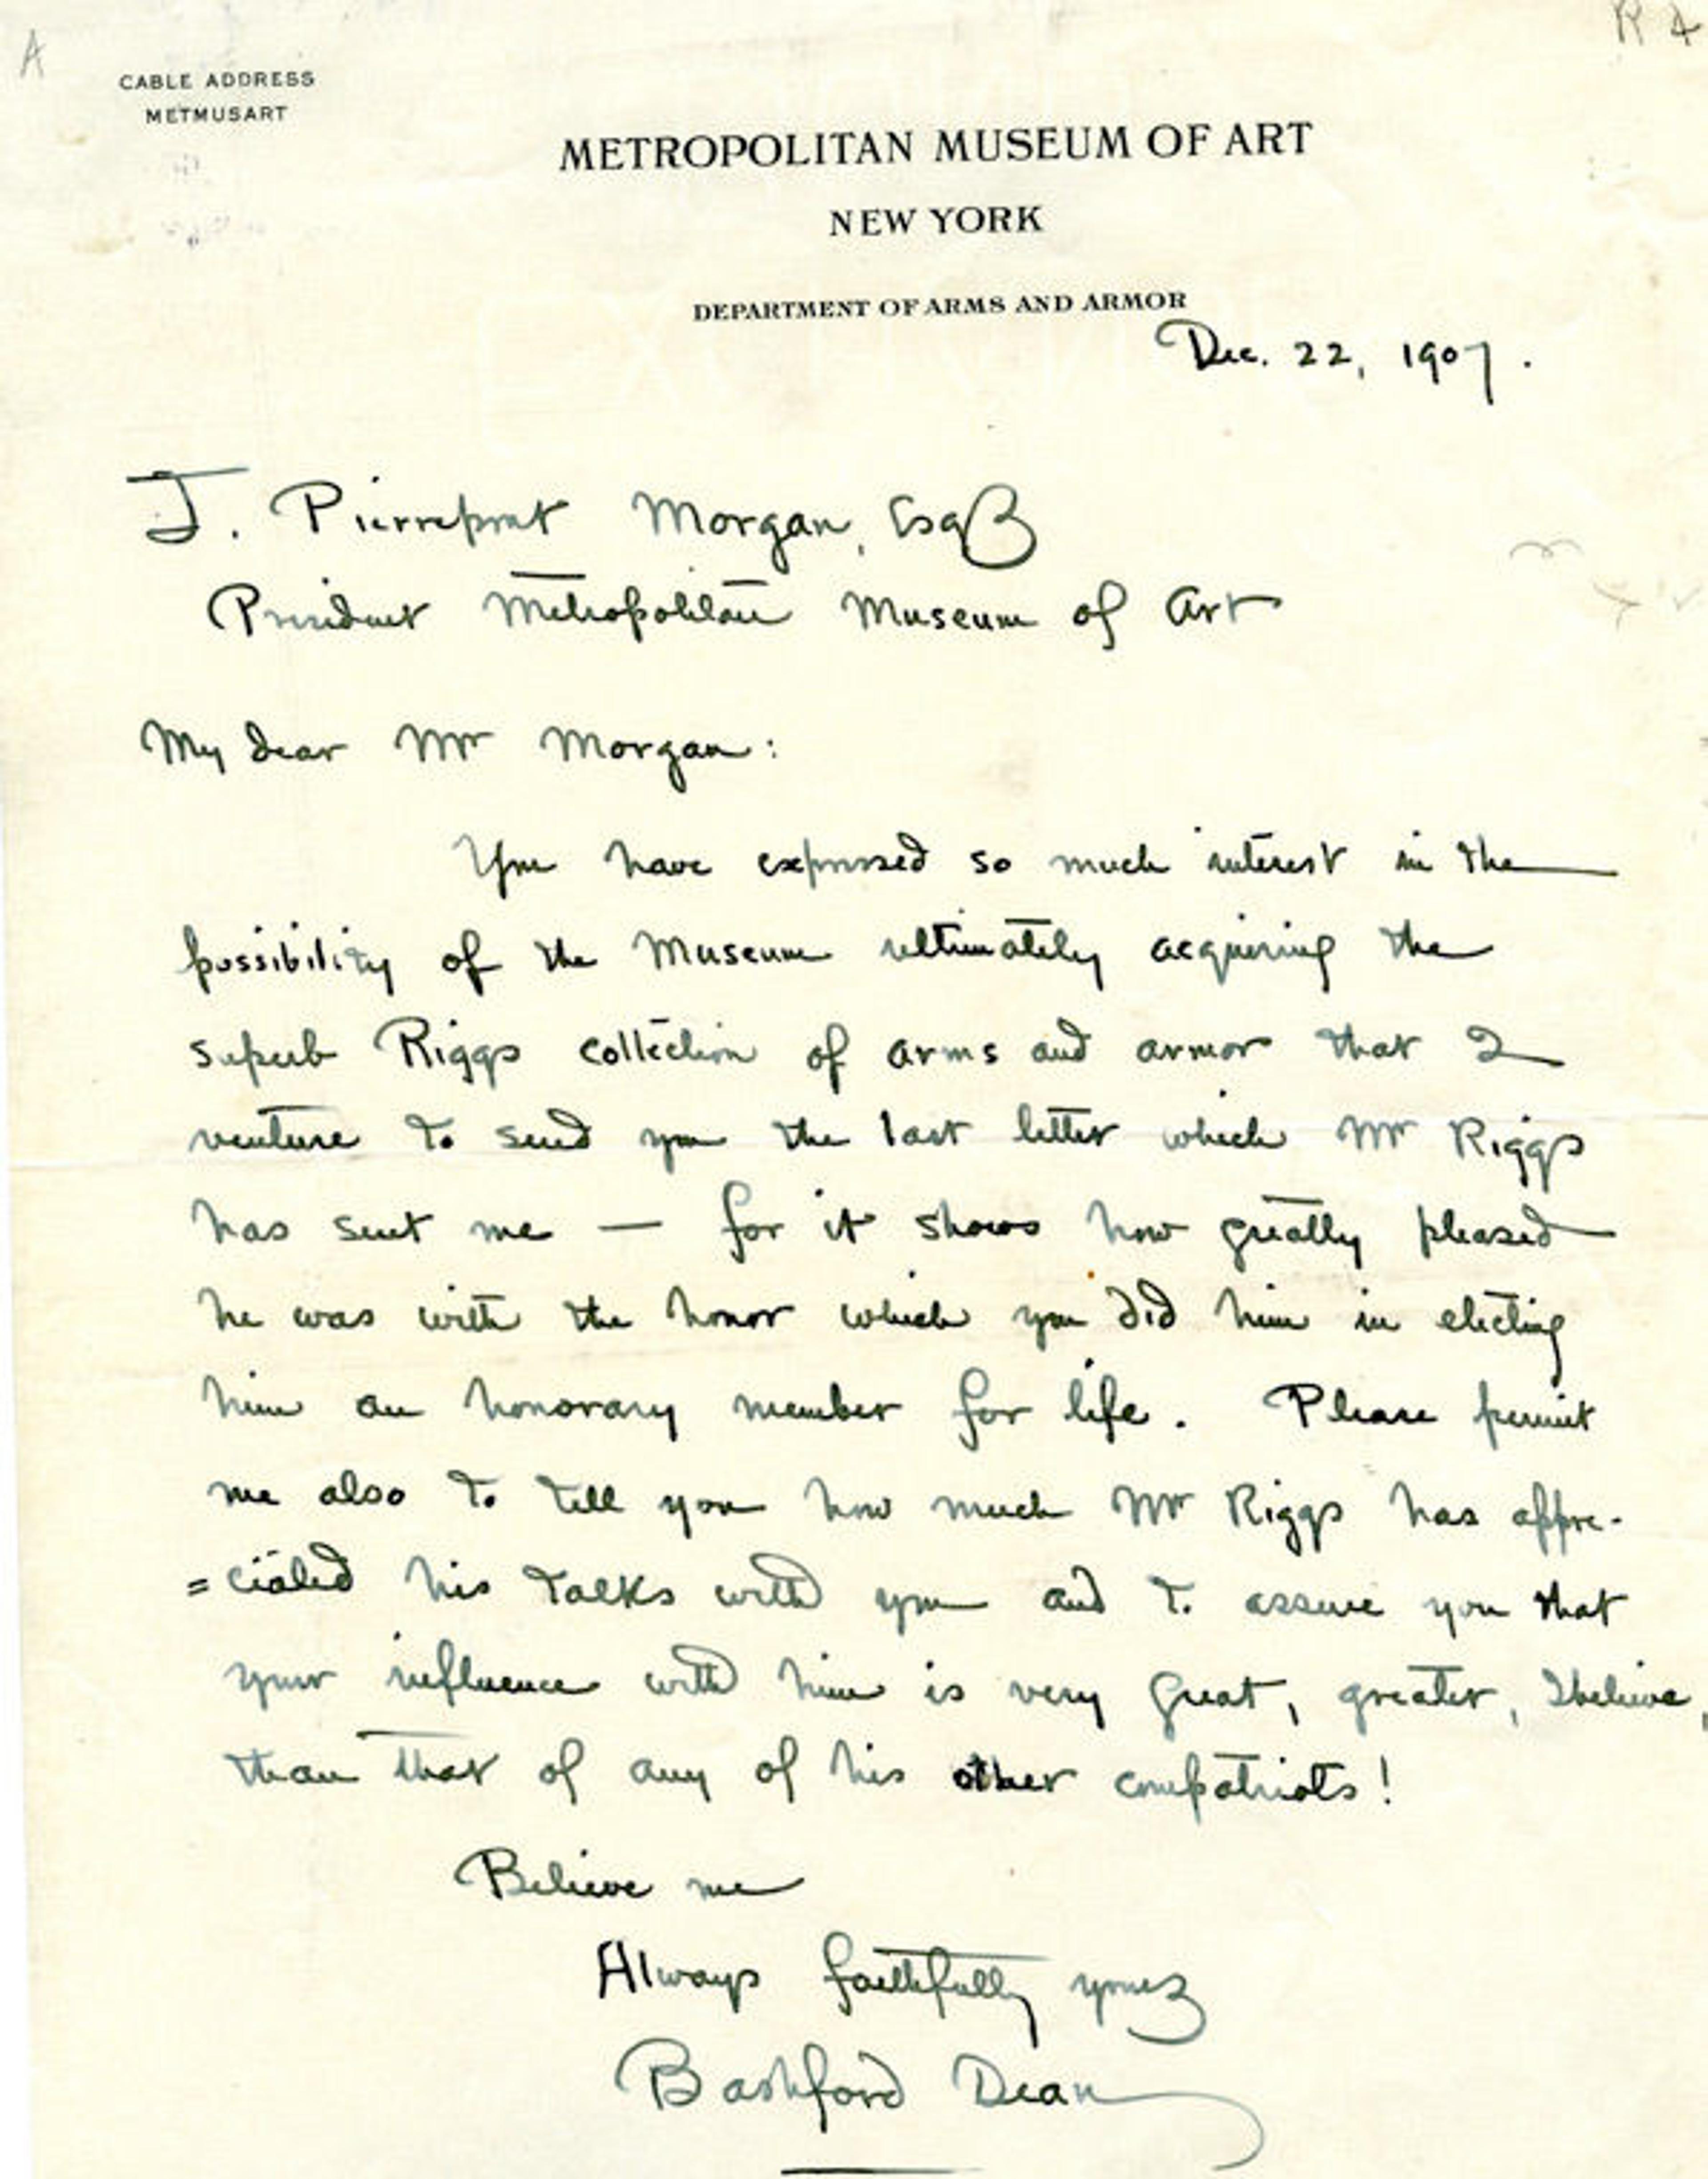 A
R 4
CABLE ADDRESS
METMUSART
METROPOLITAN MUSEUM OF ART
NEW YORK
DEPARTMENT OF ARMS AND ARMOR
Dec. 22, 1907.
J. Pierrepont Morgan, Esq
President Metropolitan Museum of Art
My dear Mr Morgan:
You have expressed so much interest in the
possibility of the Museum ultimately acquiring the
superb Riggs collection of arms and armor that I
venture to send you the last letter which Mr Riggs
has sent me — for it shows how greatly pleased
he was with the honor which you did him in electing
him an honorary member for life. Please permit
me also to tell you how much Mr Riggs has appre-
=ciated his talks with you and to assure you that
your influence with him is very great, greater, I believe,
than that of any of his other compatriots!
Believe me
Always faithfully yours
Bashford Dean